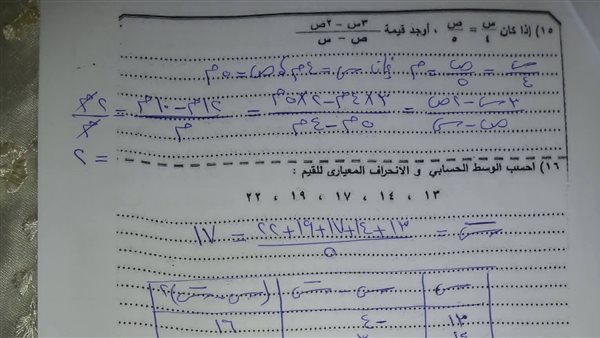 ١٥) إذا كان س/٤ = ص/٥ ، أوجد قيمة (٣س − ٢ص)/(ص − س)
س/٤ = ص/٥ = م فإن س = ٤م ، ص = ٥م
(٣س − ٢ص)/(ص − س) = (٣×٤م − ٢×٥م)/(٥م − ٤م) = (١٢م − ١٠م)/م = ٢م/م
= ٢
١٦) احسب الوسط الحسابي و الانحراف المعيارى للقيم :
١٣ ، ١٤ ، ١٧ ، ١٩ ، ٢٢
س = (١٣+١٤+١٧+١٩+٢٢)/٥ = ١٧
س | س − س | (س − س)٢
١٣ | −٤ | ١٦